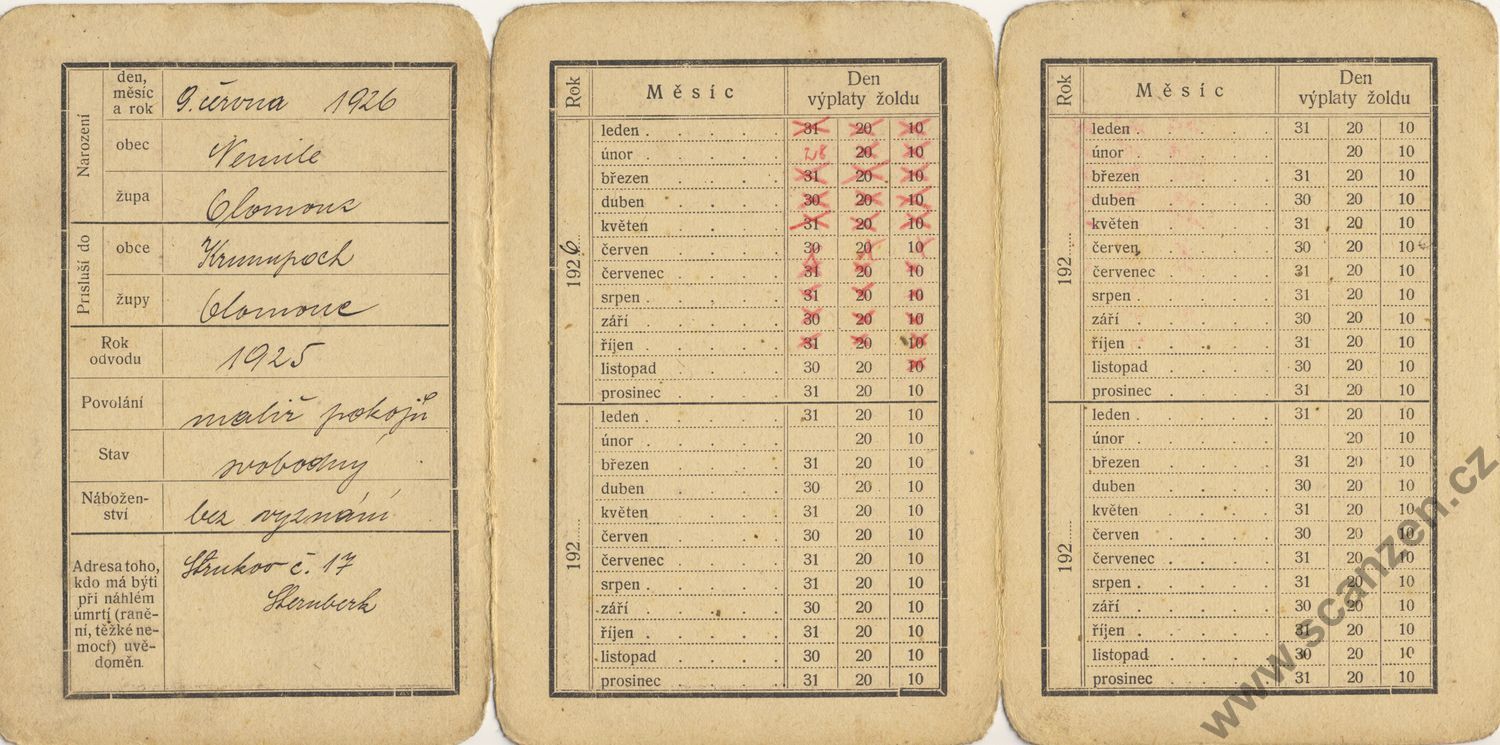 Narození
den,
měsíc
a rok
9. června 1926
obec
Nemile
župa
Olomouc
Přísluší do
obce
Krumpach
župy
Olomouc
Rok
odvodu
1925
Povolání
malíř pokojů
Stav
svobodný
Nábožen-
ství
bez vyznání
Adresa toho,
kdo má býti
při náhlém
úmrtí (raně-
ní, těžké ne-
moci) uvě-
doměn.
Strukov č. 17
Šternberk
Rok Měsíc Den
výplaty žoldu
1926
leden 31 20 10
únor 28 20 10
březen 31 20 10
duben 30 20 10
květen 31 20 10
červen 30 20 10
červenec 31 20 10
srpen 31 20 10
září 30 20 10
říjen 31 20 10
listopad 30 20 10
prosinec 31 20 10
192
leden 31 20 10
únor 20 10
březen 31 20 10
duben 30 20 10
květen 31 20 10
červen 30 20 10
červenec 31 20 10
srpen 31 20 10
září 30 20 10
říjen 31 20 10
listopad 30 20 10
prosinec 31 20 10
Rok Měsíc Den
výplaty žoldu
192
leden 31 20 10
únor 20 10
březen 31 20 10
duben 30 20 10
květen 31 20 10
červen 30 20 10
červenec 31 20 10
srpen 31 20 10
září 30 20 10
říjen 31 20 10
listopad 30 20 10
prosinec 31 20 10
192
leden 31 20 10
únor 20 10
březen 31 20 10
duben 30 20 10
květen 31 20 10
červen 30 20 10
červenec 31 20 10
srpen 31 20 10
září 30 20 10
říjen 31 20 10
listopad 30 20 10
prosinec 31 20 10
www.scanzen.cz